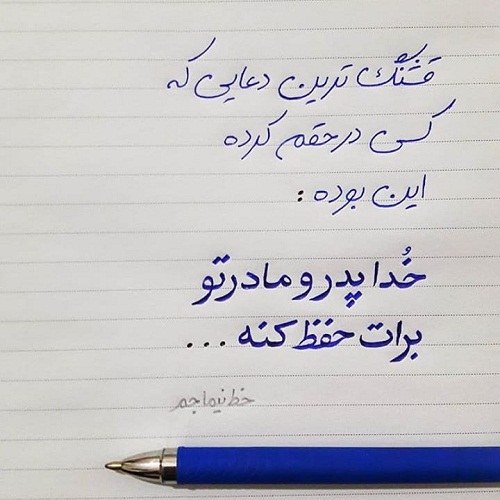 قشنگ ترین دعایی که
کسی در حقم کرده
این بوده :
خُدا پدر و مادرتو
برات حفظ کنه ...
خط نیما جم